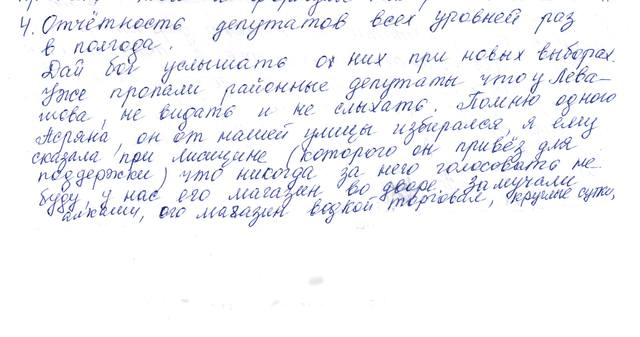 4. Отчётность депутатов всех уровней раз
в полгода.
Дай бог услышать о них при новых выборах.
Уже пропали районные депутаты что у Лева-
шова, не видать и не слыхать. Помню одного
Асряна, он от нашей улицы избирался, я ему
сказала при Мищине (которого он привёз для
поддержки) что никогда за него голосовать не
буду, у нас его магазин во дворе. Замучали
алкаши, его магазин водкой торговал, круглые сутки,